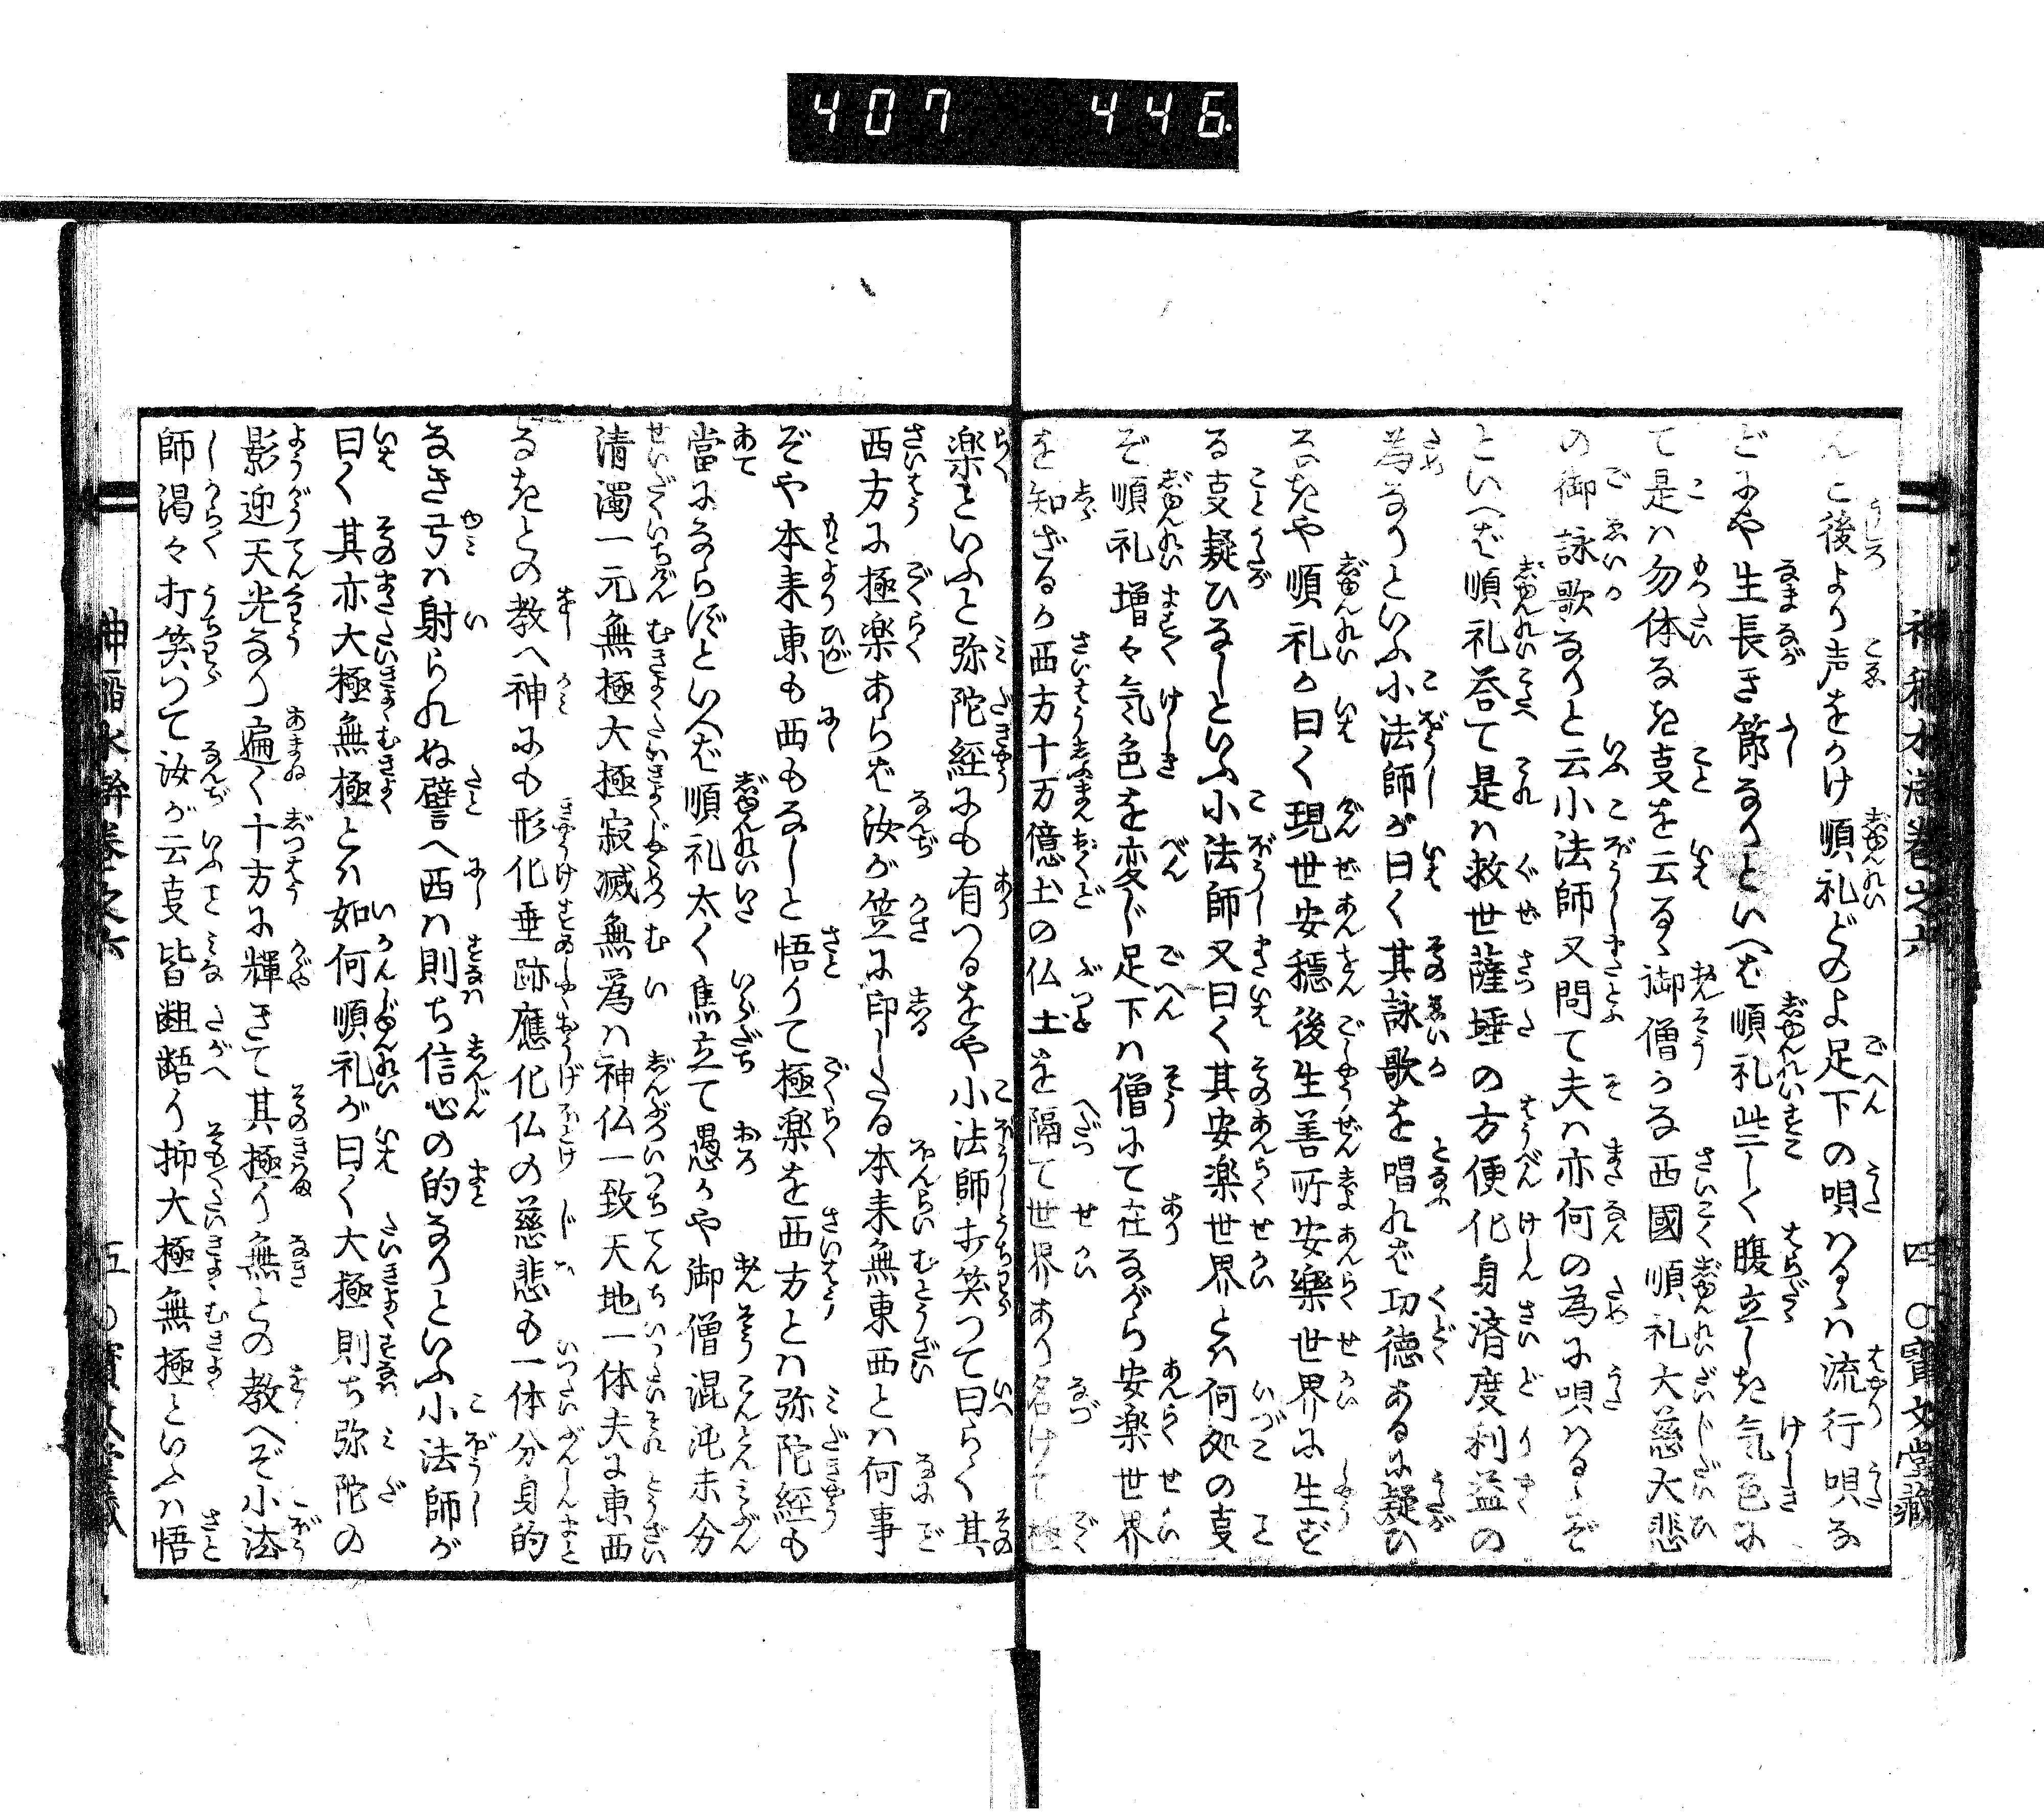 407 446
んと後より声をかけ順礼どのよ足下の唄はるゝハ流行唄な
どにや生長き節なりといへば順礼些しく腹立しき気色に
て是ハ勿体なき㕝を云るゝ御僧かな西國順礼大慈大悲
の御詠歌なりと云小法師又問て夫ハ亦何の為に唄はるゝぞ
といへば順礼荅て是ハ救世薩埵の方便化身済度利益の
為なりといふ小法師が曰く其詠歌を唱れば功徳あるに疑ひ
なきや順礼が曰く現世安穏後生善所安樂世界に生ず
る㕝疑ひなしといふ小法師又曰く其安楽世界とハ何処の㕝
ぞ順礼増々気色を変じ足下ハ僧にて在ながら安楽世界
を知ざるか西方十万億土の仏土を隔て世界あり名けて極
楽といふと弥陀経にも有つるをや小法師打笑つて曰らく其
西方に極楽あらば汝が笠に印したる本来無東西とハ何事
ぞや本来東も西もなしと悟りて極楽を西方とハ弥陀経も
當にならずといへば順礼太く焦立て愚かや御僧混沌未分
清濁一元無極大極寂滅無爲ハ神仏一致天地一体夫に東西
なきとの教へ神にも形化垂跡應化仏の慈悲も一体分身的
なき弓ハ射られぬ譬へ西ハ則ち信心の的なりといふ小法師が
曰く其亦大極無極とハ如何順礼が曰く大極則ち弥陀の
影迎天光なり遍く十方に輝きて其極り無との教へぞ小法
師渇々打笑つて汝が云㕝皆齟齬り抑大極無極といふハ悟
四 ○寶文堂藏
五